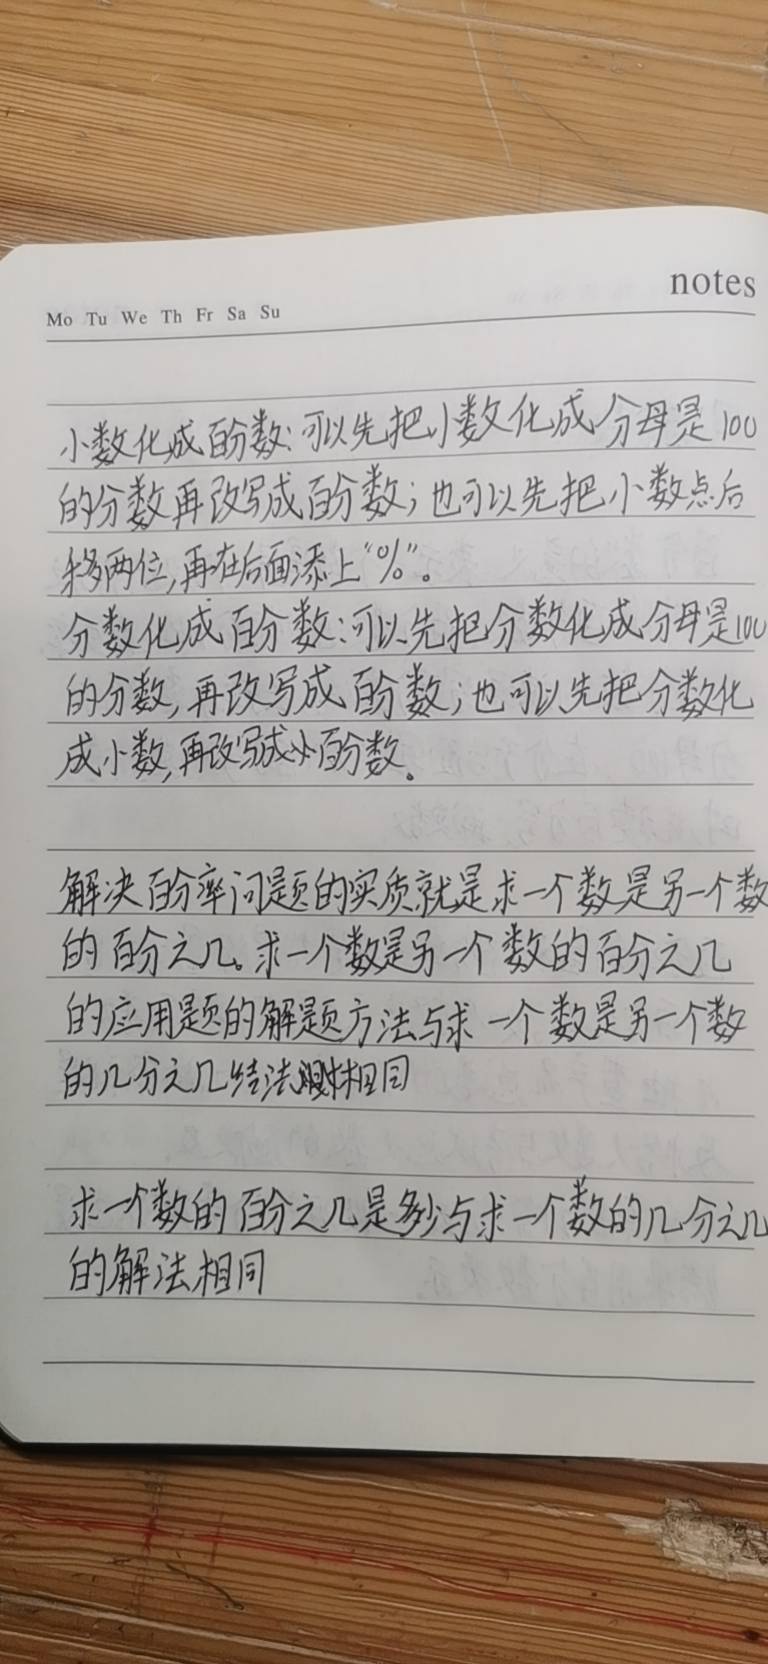 notes
Mo Tu We Th Fr Sa Su
小数化成百分数:可以先把小数化成分母是100
的分数再改写成百分数;也可以先把小数点后
移两位,再在后面添上“%”。
分数化成百分数:可以先把分数化成分母是100
的分数,再改写成百分数;也可以先把分数化
成小数,再改写成百分数。
解决百分率问题的实质就是求一个数是另一个数
的百分之几。求一个数是另一个数的百分之几
的应用题的解题方法与求一个数是另一个数
的几分之几结法相同
求一个数的百分之几是多少与求一个数的几分之几
的解法相同